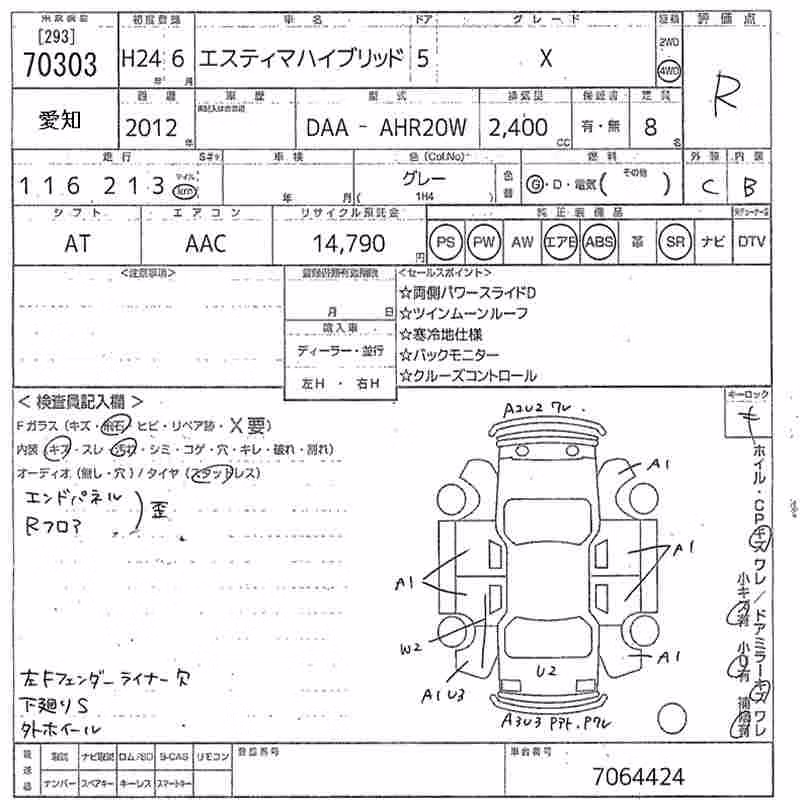 [293]
70303
初度登録 車名 ドア グレード
H24 6 エスティマハイブリッド 5 X
年 月
2WD
4WD
評価点
R
愛知
車歴 型式 排気量 保証書 定員
2012年 DAA - AHR20W 2,400CC 有・無 8名
走行 車検 色(Col.No) 燃料 外装 内装
116213 マイル km 年 月 グレー 1H4 色替 G・D・電気( その他 ) C B
シフト エアコン リサイクル預託金 純正装備品
AT AAC 14,790円 PS PW AW エアB ABS 革 SR ナビ DTV
<注意事項>
月 日
輸入車
ディーラー・並行
左H ・ 右H
<セールスポイント>
☆両側パワースライドD
☆ツインムーンルーフ
☆寒冷地仕様
☆バックモニター
☆クルーズコントロール
キーロック
キ
<検査員記入欄>
Fガラス(キズ・飛石・ヒビ・リペア跡・X要)
内装(キズ・スレ・汚れ・シミ・コゲ・穴・キレ・破れ・割れ)
オーディオ(無し・穴)/タイヤ(スタッドレス)
エンドパネル
Rフロア
歪
左Fフェンダーライナー欠
下廻りS
外ホイール
A2U2 ワレ
A1
A1
A1
W2
A1U3
U2
A1
A3U3
ホイル・CPキズ ワレ/ドアミラーキズ ワレ
小キズ有 小U有 補修有
取説 ナビ取説 ロム/SD B-CAS リモコン
ナンバー スペアキー キーレス スマートキー
登録番号
車台番号
7064424